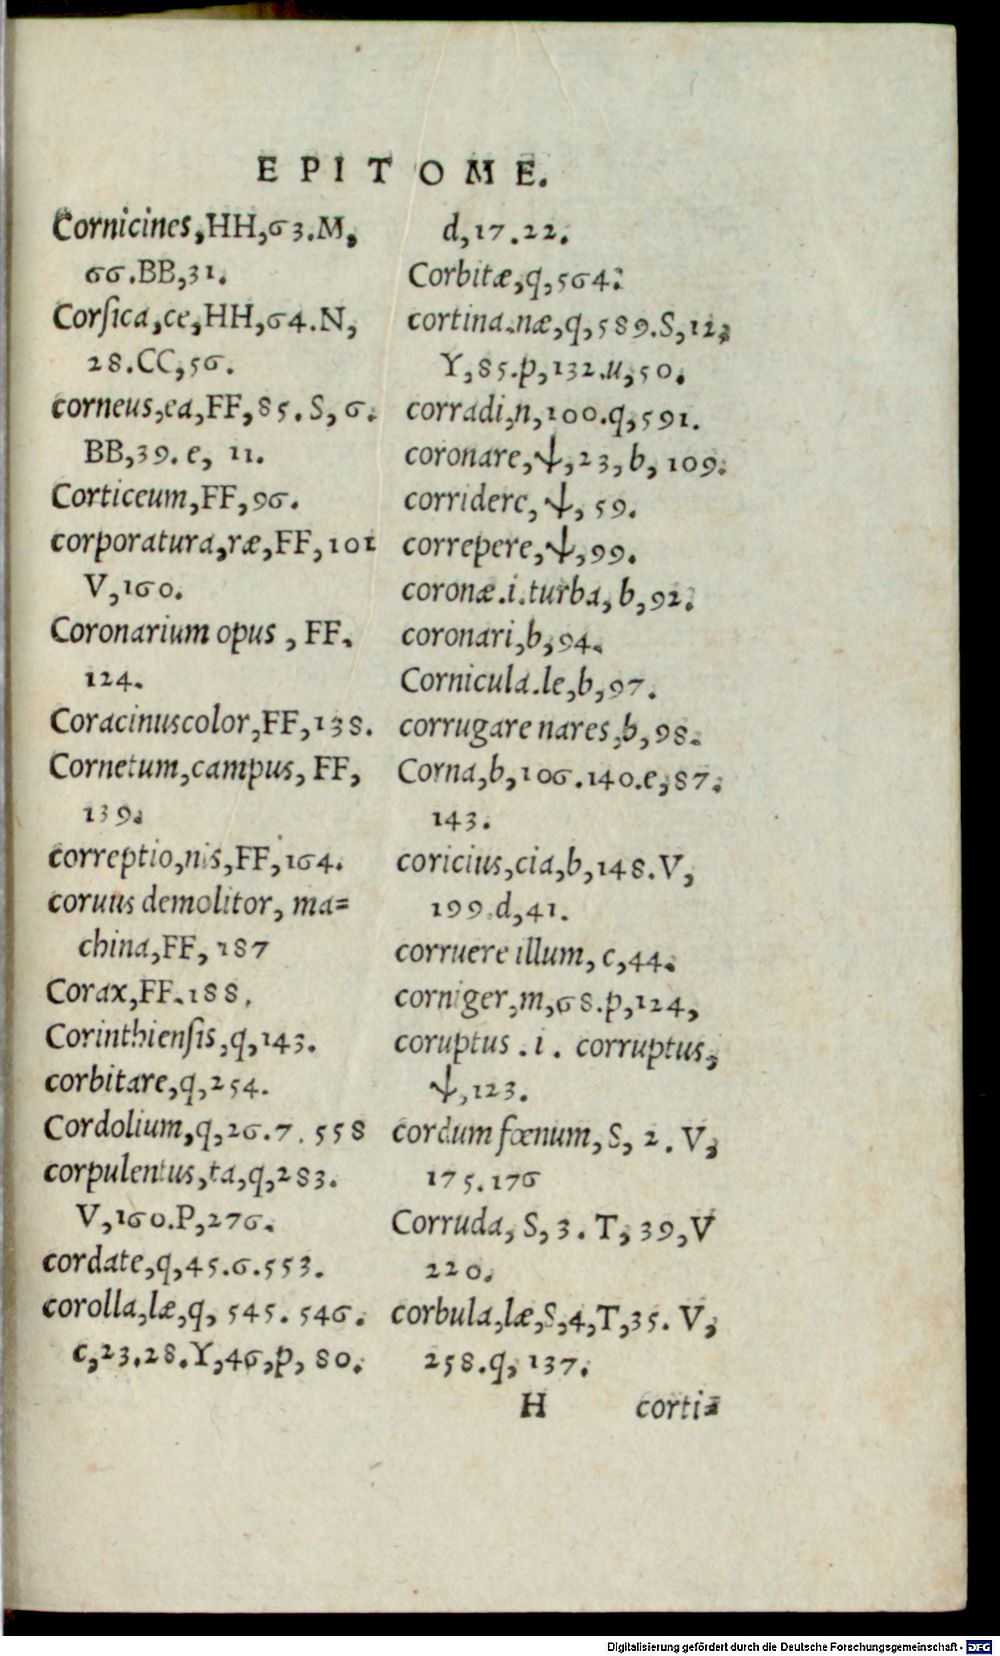 EPITOME.
Cornicines,HH,63.M,
66.BB,31.
Corſica,ce,HH,64.N,
28.CC,56.
corneus,ea,FF,85.S,6.
BB,39.e, 11.
Corticeum,FF,96.
corporatura,ræ,FF,101
V,160.
Coronarium opus , FF.
124.
Coracinus color,FF,138.
Cornetum,campus, FF,
139.
correptio,nis,FF,164.
coruus demolitor, ma=
china,FF, 187
Corax,FF.188.
Corinthienſis,q,143.
corbitare,q,254.
Cordolium,q,26.7.558
corpulentus,ta,q,283.
V,160.P,276.
cordate,q,45.6.553.
corolla,læ,q, 545. 546.
c,23.28.Y,46,p, 80.
d,17.22.
Corbitæ,q,564.
cortina.næ,q,589.S,12,
Y,85.p,132.u,50.
corradi,n,100.q,591.
coronare,ψ,23,b, 109.
corridere, ψ, 59.
correpere,ψ,99.
coronæ.i.turba, b,92.
coronari,b,94.
Cornicula.le,b,97.
corrugare nares,b,98.
Corna,b,106.140.e,87.
143.
coricius,cia,b,148.V,
199.d,41.
corruere illum, c,44.
corniger,m,68.p,124,
coruptus .i. corruptus,
ψ,123.
cordum fœnum, S, 2. V,
175.176
Corruda, S, 3. T, 39,V
220.
corbula,læ,S,4,T,35. V,
258.q, 137.
H corti=
Digitalisierung gefördert durch die Deutsche Forschungsgemeinschaft - DFG